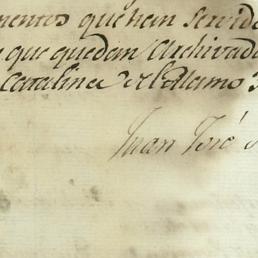 mentos que han servido
que quedan Archivado
Catalina del Alamo
Juan José